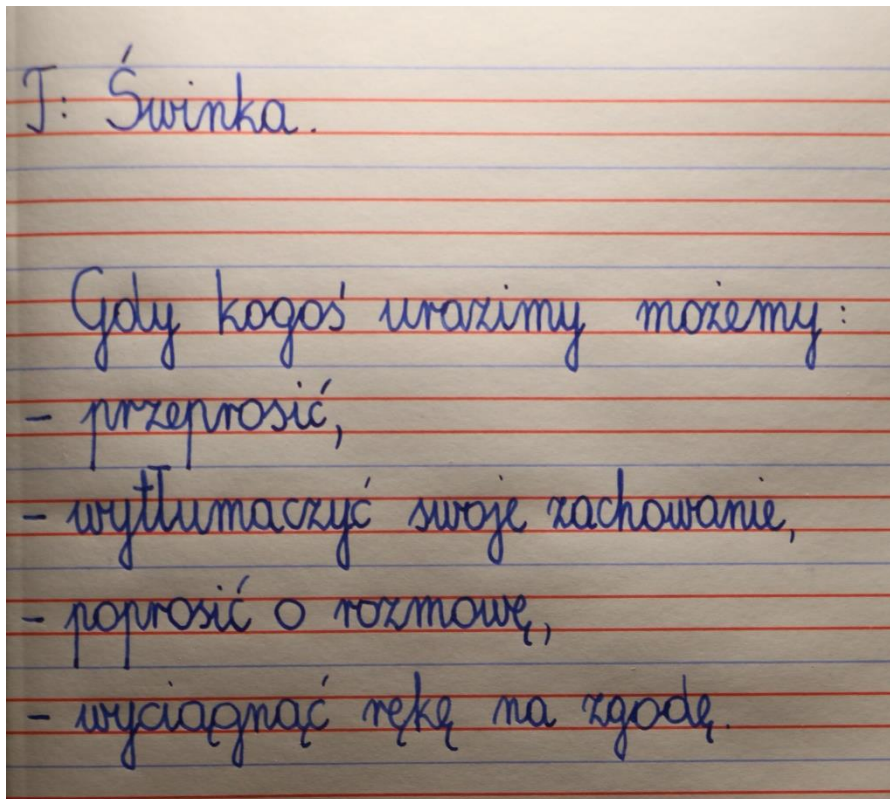 T: Świnka.
Gdy kogoś urazimy możemy:
- przeprosić,
- wytłumaczyć swoje zachowanie,
- poprosić o rozmowę,
- wyciągnąć rękę na zgodę.